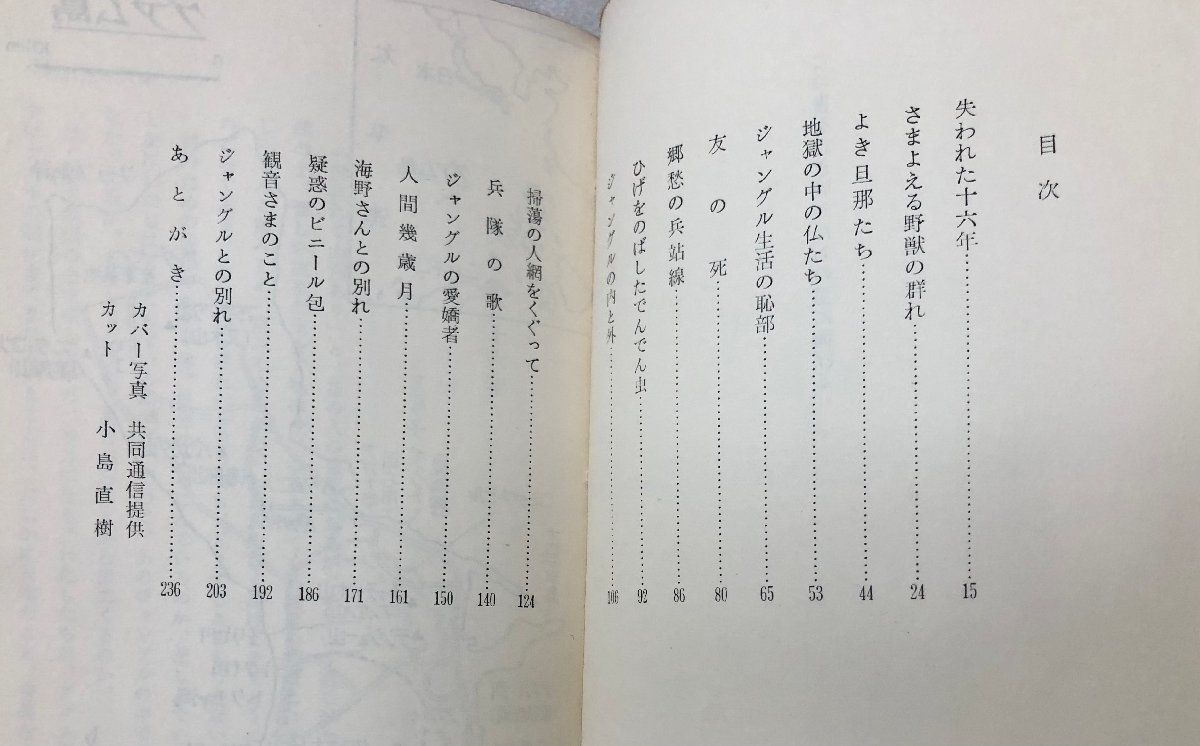 目次
失われた十六年……15
さまよえる野獣の群れ……24
よき旦那たち……44
地獄の中の仏たち……53
ジャングル生活の恥部……65
友の死……80
郷愁の兵站線……86
ひげをのばしたでんでん虫……92
ジャングルの内と外……106
掃蕩の人網をくぐって……124
兵隊の歌……140
ジャングルの愛嬌者……150
人間幾歳月……161
海野さんとの別れ……171
疑惑のビニール包……186
観音さまのこと……192
ジャングルとの別れ……203
あとがき……236
カバー写真 共同通信提供
カット 小島直樹